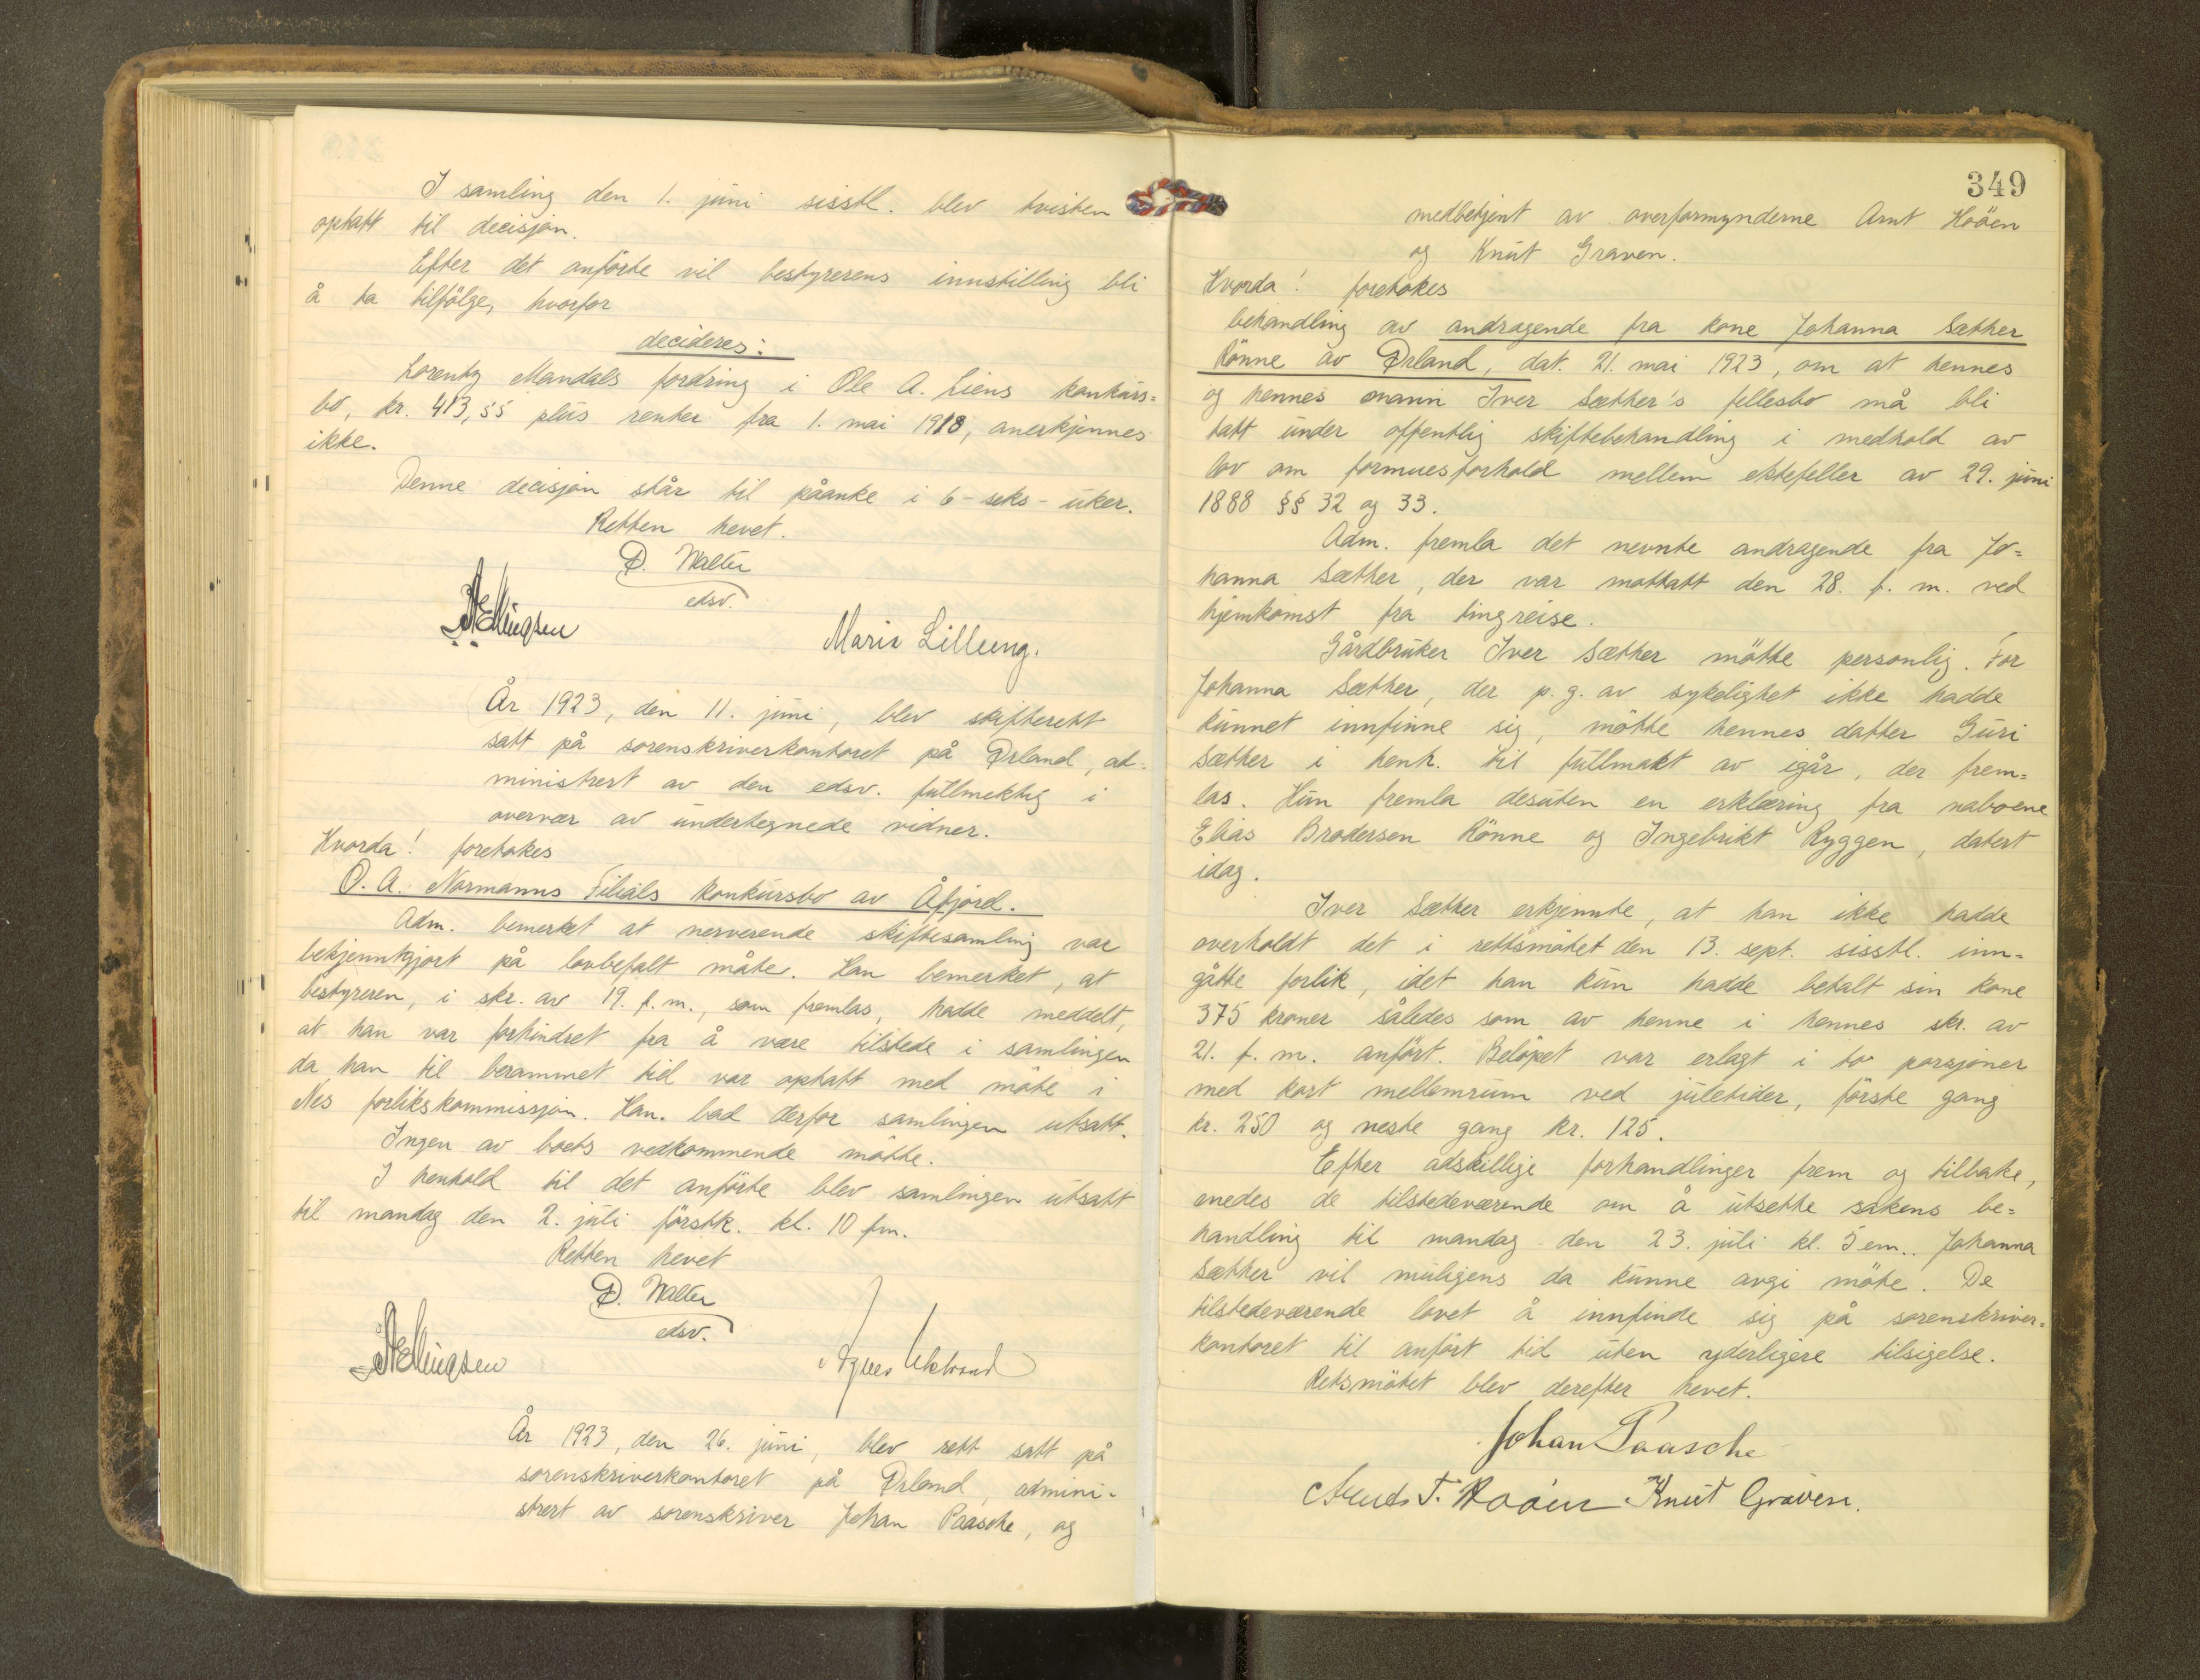 I samling den 1. juni sisstl. blev tvisten
optatt til decisjon.
Efter det anförte vil bestyrerens innstilling bli
å ta tilfölge, hvorfor
decideres:
Lorentz Mandals fordring i Ole A. Liens konkurs=
bo, kr. 413,55 plus renter fra 1. mai 1918, anerkjennes
ikke.
Denne decisjon står til påanke i 6 - seks - uker.
Retten hevet.
D. Walter
edsv.
Maria Lilleeng.
År 1923, den 11. juni, blev skifterett
satt på sorenskriverkontoret på Ørland, ad-
ministrert av den edsv. fullmektig i
overvær av undertegnede vidner.
Hvorda! foretokes
O. A. Normanns Filials konkursbo av Åfjord.
Adm. bemerket at nerverende skiftesamling var
bekjenntgjort på lovbefalt måte. Han bemerket, at
bestyreren, i skr. av 19. f. m., som fremlas, hadde meddelt,
at han var forhindret fra å være tilstede i samlingen
da han til berammet tid var optatt med möte i
Nes forlikskommissjon. Han bad derfor samlingen utsatt.
Ingen av boets vedkommende mötte.
I henhold til det anförte blev samlingen utsatt
til mandag den 2. juli förstk. kl. 10 fm.
Retten hevet
D. Walter
edsv.
År 1923, den 26. juni, blev rett satt på
sorenskriverkontoret på Ørland, admini-
strert av sorenskriver Johan Paasche, og
349
medbetjent av overformynderne Arnt Hoöen
og Knut Graven.
Hvorda! foretokes
behandling av andragende fra kone Johanna Sæther
Rönne av Ørland, dat. 21. mai 1923, om at hennes
og hennes mann Iver Sæther's fellesbo må bli
tatt under offentlig skiftebehandling i medhold av
lov om formuesforhold mellem ektefeller av 29. juni
1888 §§ 32 og 33.
Adm. fremla det nevnte andragende fra Jo=
hanna Sæther, der var mottatt den 28. f. m. ved
hjemkomst fra tingreise.
Gårdbruker Iver Sæther mötte personlig. For
Johanna Sæther, der p. g. av sykelighet ikke hadde
kunnet innfinne sig, mötte hennes datter Guri
Sæther i henh. til fullmakt av igår, der frem=
las. Hun fremla desuten en erklæring fra naboene
Elias Brodersen Rönne og Ingebrikt Ryggen, datert
idag.
Iver Sæther erkjennte, at han ikke hadde
overholdt det i rettsmötet den 13. sept. sisstl. inn=
gåtte forlik, idet han kun hadde betalt sin kone
375 kroner således som av henne i hennes skr. av
21. f. m. anfört. Belöpet var erlagt i to porsjoner
med kort mellemrum ved juletider, förste gang
kr. 250 og neste gang kr. 125.
Efter adskillige forhandlinger frem og tilbake,
enedes de tilstedeværende om å utsette sakens be=
handling til mandag den 23. juli kl. 5 em.. Johanna
Sæther vil muligens da kunne avgi möte. De
tilstedeværende lovet å innfinde sig på sorenskriver=
kontoret til anfört tid uten yderligere tilsigelse.
Retsmötet blev derefter hevet.
Johan Paasche
Arnt T. Hoöen Knut Graven.